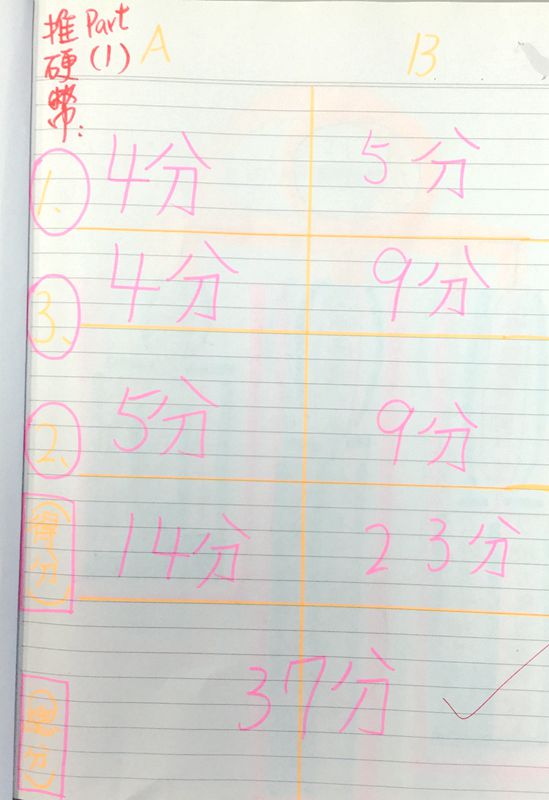 推硬幣: Part (1) A B
1. 4分 5分
3. 4分 9分
2. 5分 9分
(得分) 14分 23分
(總分) 37分